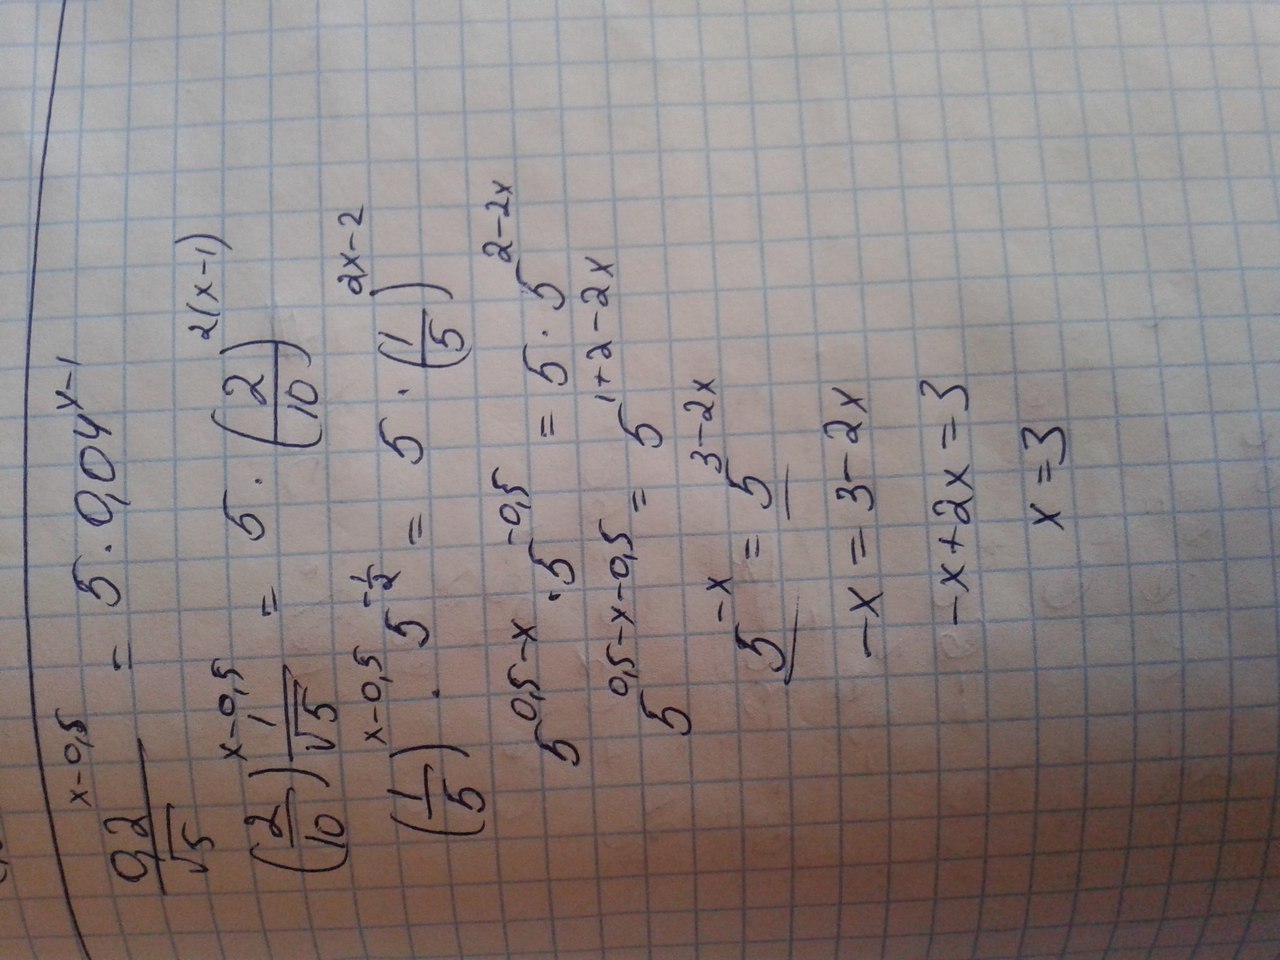 0,2^(x-0,5) / √5 = 5 · 0,04^(x-1)
(2/10)^(x-0,5) 1/√5 = 5 · (2/10)^(2(x-1))
(1/5)^(x-0,5) · 5^(-1/2) = 5 · (1/5)^(2x-2)
5^(0,5-x) · 5^(-0,5) = 5 · 5^(2-2x)
5^(0,5-x-0,5) = 5^(1+2-2x)
5^(-x) = 5^(3-2x)
-x = 3-2x
-x+2x = 3
x = 3